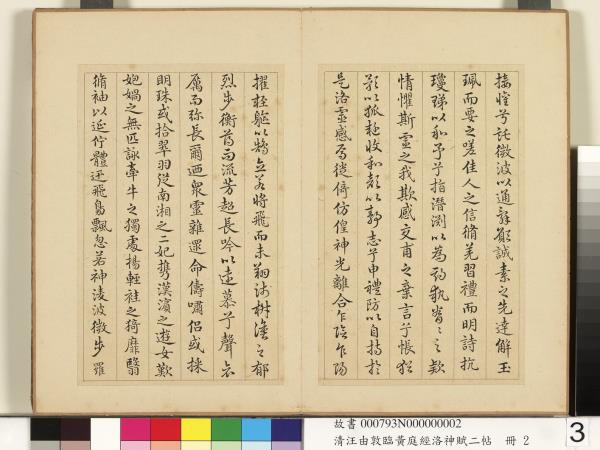 接懽兮託微波以通辭願誠素之先達解玉
珮而要之嗟佳人之信脩羌習禮而明詩抗
瓊珶以和予兮指潛淵以為期執眷眷之款
情懼斯靈之我欺感交甫之棄言兮悵猶
豫以狐疑收和顏以靜志兮申禮防以自持於
是洛靈感焉徙倚仿偟神光離合乍陰乍陽
擢輕軀以鶴立若將飛而未翔踐椒塗之郁
烈步蘅薄而流芳超長吟以遠慕兮聲哀
厲而彌長爾迺眾靈雜遝命儔嘯侶或採
明珠或拾翠羽從南湘之二妃攜漢濱之遊女歎
匏媧之無匹詠牽牛之獨處揚輕袿之猗靡翳
脩袖以延佇體迅飛鳧飄忽若神淩波微步羅
故書 000793N000000002
清汪由敦臨黃庭經洛神賦二帖 冊 2
3